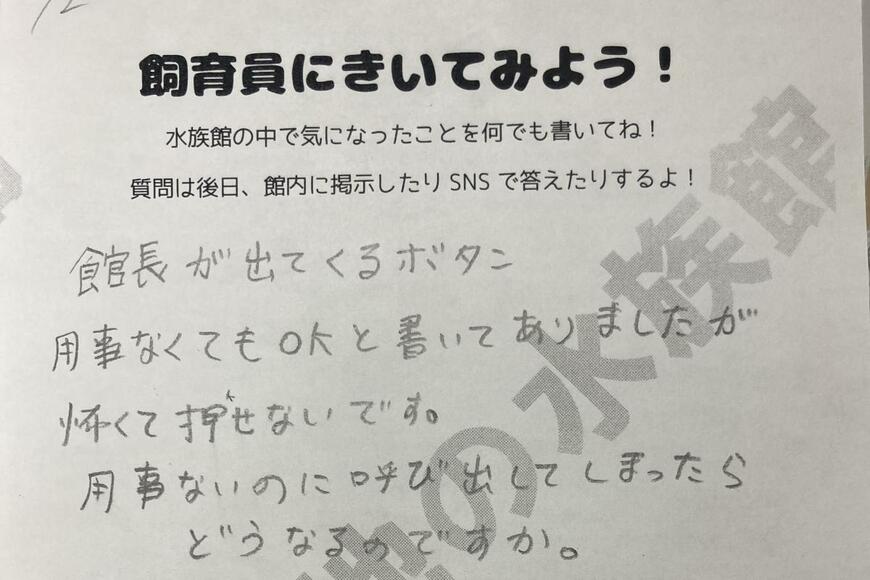 12
飼育員にきいてみよう！
水族館の中で気になったことを何でも書いてね！
質問は後日、館内に掲示したり SNS で答えたりするよ！
館長が出てくるボタン
用事なくてもOKと書いてありましたが
怖くて押せないです。
用事ないのに呼び出してしまったら
どうなるのですか。
の水族館